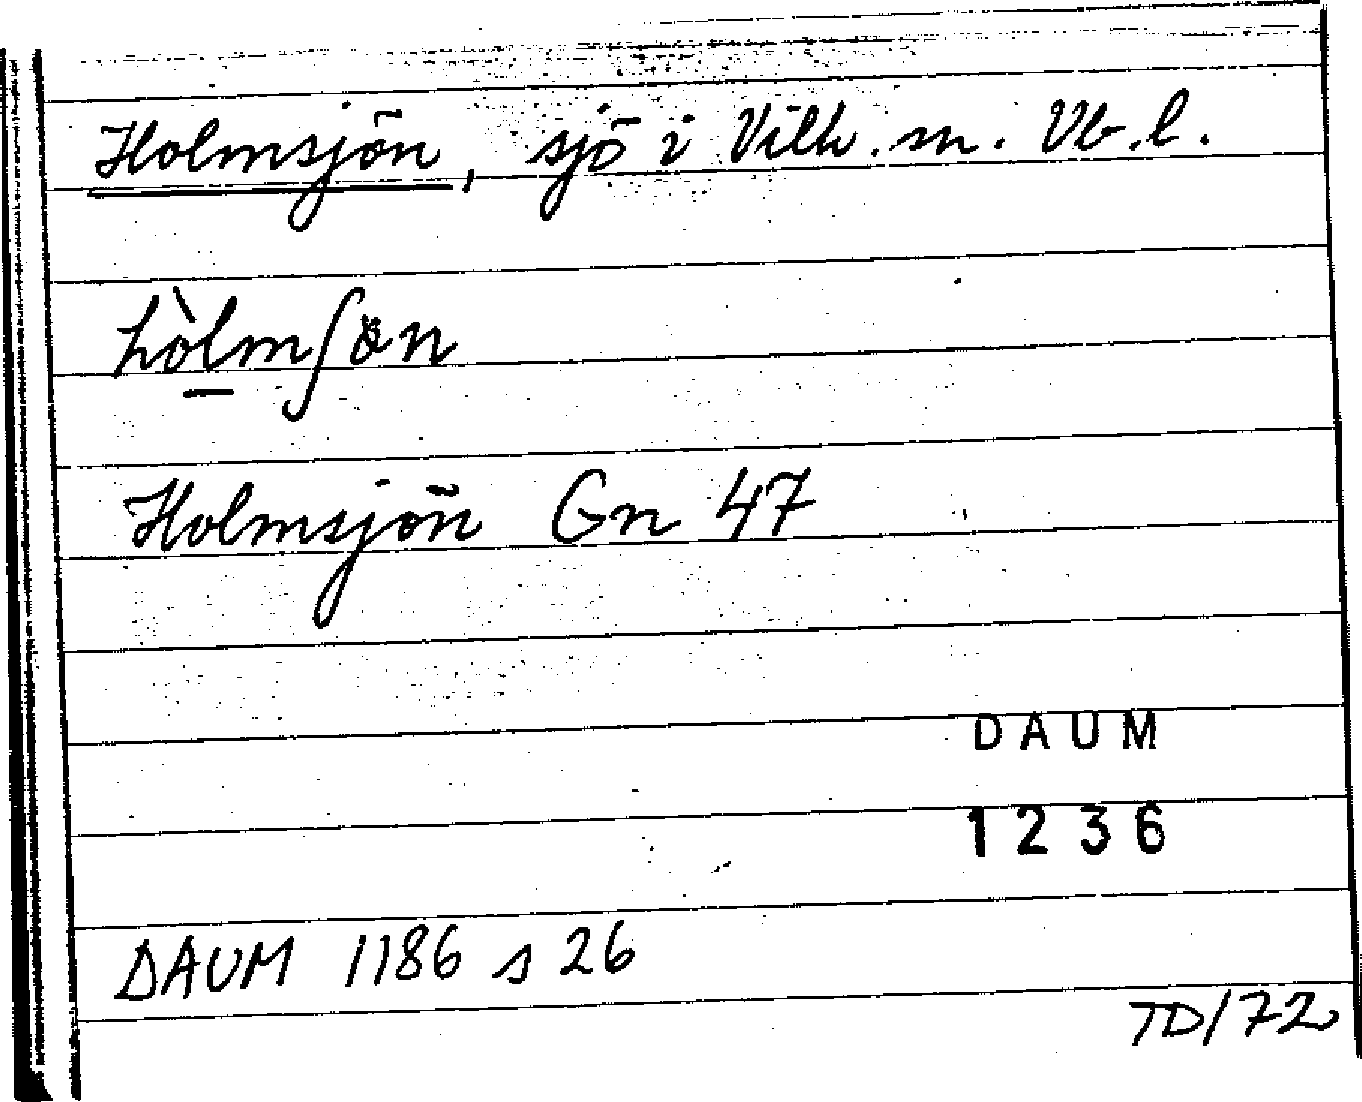 Holmsjön, sjö i Vilh. m. Vb. l.
hòl̲mʃön
Holmsjön Gn 47
DAUM
1236
DAUM 1186 s 26
TD/72